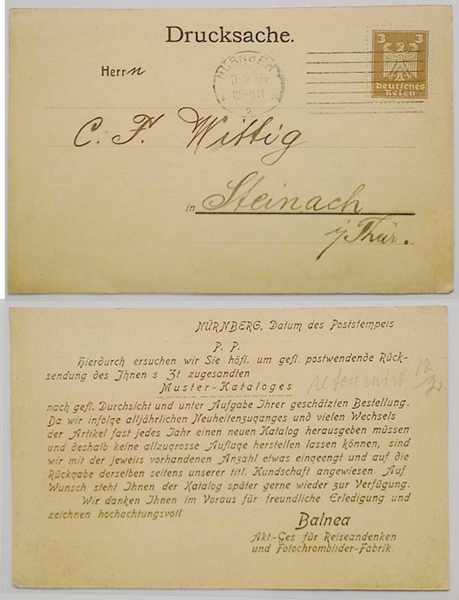 Drucksache.
3 3
Deutsches
Reich
NÜRNBERG
2
Herrn
C. F. Wittig
in Steinach
i/Thür.
NÜRNBERG, Datum des Poststempels
P. P.
Hierdurch ersuchen wir Sie höfl. um gefl. postwendende Rück-
sendung des Ihnen s Zt zugesandten
Muster-Kataloges
retourniert 12/2
nach gefl. Durchsicht und unter Aufgabe Ihrer geschätzten Bestellung.
Da wir infolge alljährlichen Neuheitenzuganges und vielen Wechsels
der Artikel fast jedes Jahr einen neuen Katalog herausgeben müssen
und deshalb keine allzugrosse Auflage herstellen lassen können, sind
wir mit der jeweils vorhandenen Anzahl etwas eingeengt und auf die
Rückgabe derselben seitens unserer titl. Kundschaft angewiesen. Auf
Wunsch steht Ihnen der Katalog später gerne wieder zur Verfügung.
Wir danken Ihnen im Voraus für freundliche Erledigung und
zeichnen hochachtungsvoll
Balnea
Akt-Ges für Reiseandenken
und Fotochrombilder-Fabrik.